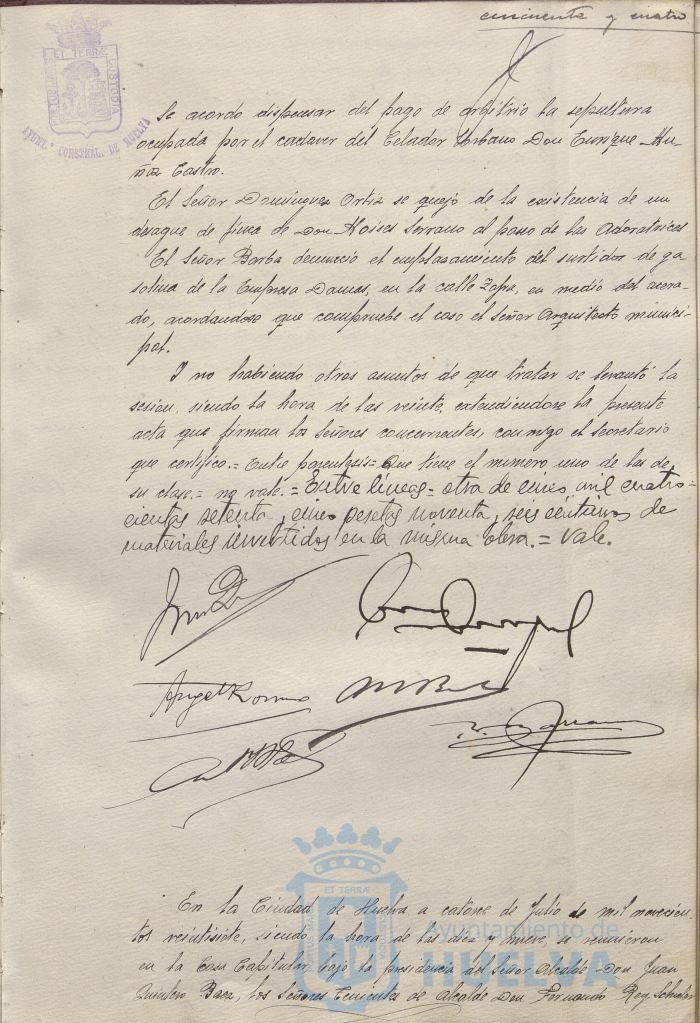 cincuenta y cuatro
ET TERRÆ
CUSTODIA
AYUNT.º CONSTNAL. DE HUELVA
Se acordo dispensar del pago de arbitrio la sepultura
ocupada por el cadaver del Celador Urbano Don Enrique Mu-
ñoz Castro.
El Señor Dominguez Ortiz se quejó de la existencia de un
desague de finca de Don Moises Serrano al paseo de las Adoratrices
El Señor Borba denunció el emplazamiento del surtidor de ga
solina de la Empresa Damas, en la calle Zafra, en medio del acera-
do, acordandose que compruebe el caso el Señor Arquitecto munici-
pal.
I no habiendo otros asuntos de que tratar se levantó la
sesion, siendo la hora de las veinte, extendiendose la presente
acta que firman los Señores concurrentes, conmigo el secretario
que certifico.= Entre parentesis= Que tiene el numero uno de los de
su clase.= no vale.= Entre líneas= otra de cinco mil cuatro-
cientas setenta y cinco pesetas noventa y seis céntimos de
materiales invertidos en la misma obra.= Vale.
Angel Romo
ET TERRÆ
Ayuntamiento de
HUELVA
En la Ciudad de Huelva a catorce de Julio de mil novecien-
tos veintisiete, siendo la hora de las diez y nueve, se reunieron
en la Casa Capitular bajo la presidencia del Señor Alcalde Don Juan
Quintero Baez, los Señores Tenientes de Alcalde Don Fernando Rey